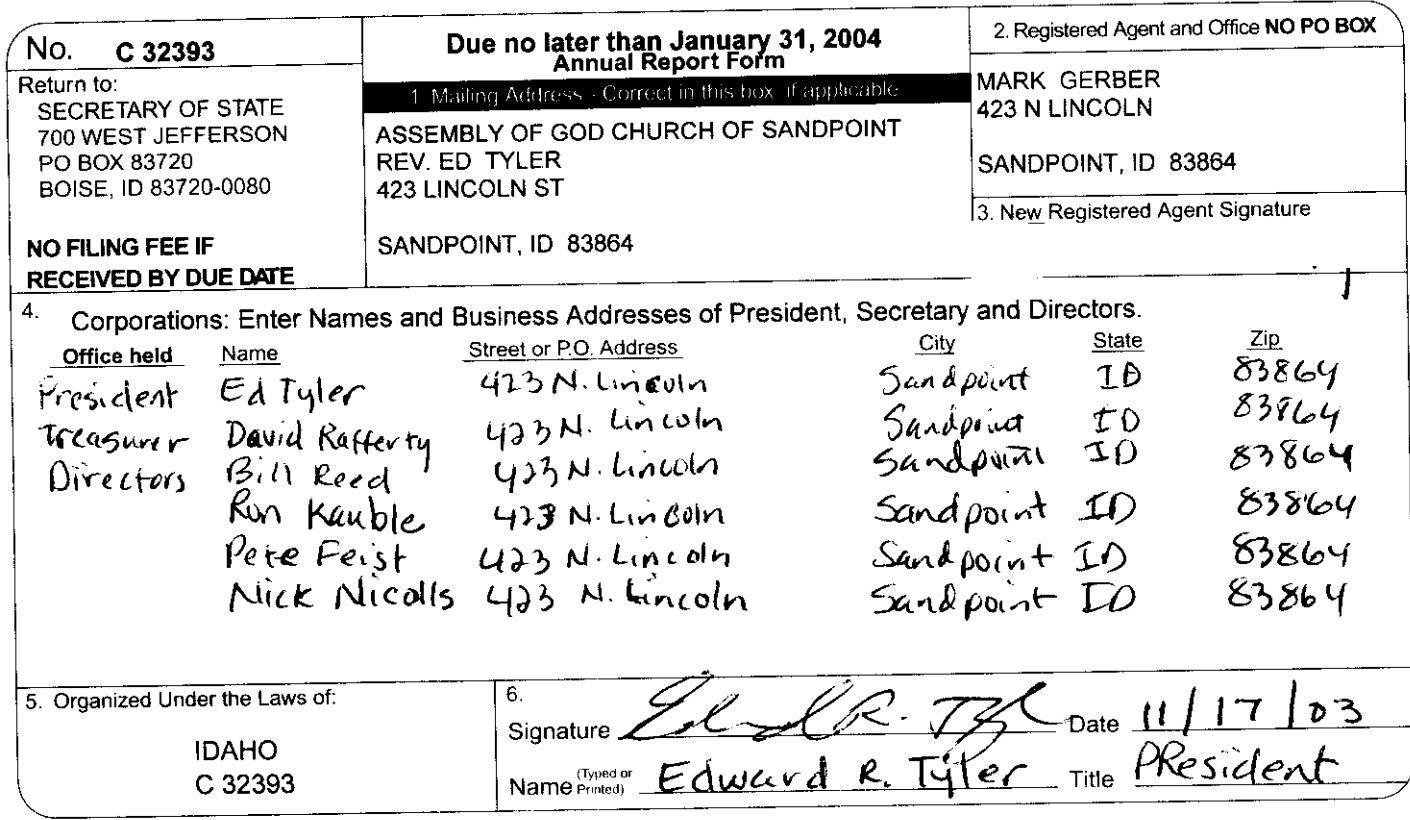 No. C 32393
Return to:
SECRETARY OF STATE
700 WEST JEFFERSON
PO BOX 83720
BOISE, ID 83720-0080
NO FILING FEE IF
RECEIVED BY DUE DATE
Due no later than January 31, 2004
Annual Report Form
1. Mailing Address - Correct in this box, if applicable
ASSEMBLY OF GOD CHURCH OF SANDPOINT
REV. ED TYLER
423 LINCOLN ST
SANDPOINT, ID 83864
2. Registered Agent and Office NO PO BOX
MARK GERBER
423 N LINCOLN
SANDPOINT, ID 83864
3. New Registered Agent Signature
4. Corporations: Enter Names and Business Addresses of President, Secretary and Directors.
Office held Name Street or P.O. Address City State Zip
President Ed Tyler 423 N. Lincoln Sandpoint ID 83864
Treasurer David Rafferty 423 N. Lincoln Sandpoint ID 83864
Directors Bill Reed 423 N. Lincoln Sandpoint ID 83864
Ron Kauble 423 N. Lincoln Sandpoint ID 83864
Pete Feist 423 N. Lincoln Sandpoint ID 83864
Nick Nicolls 423 N. Lincoln Sandpoint ID 83864
5. Organized Under the Laws of:
IDAHO
C 32393
6.
Signature Edward R. Tyler Date 11/17/03
Name (Typed or Printed) Edward R. Tyler Title PResident